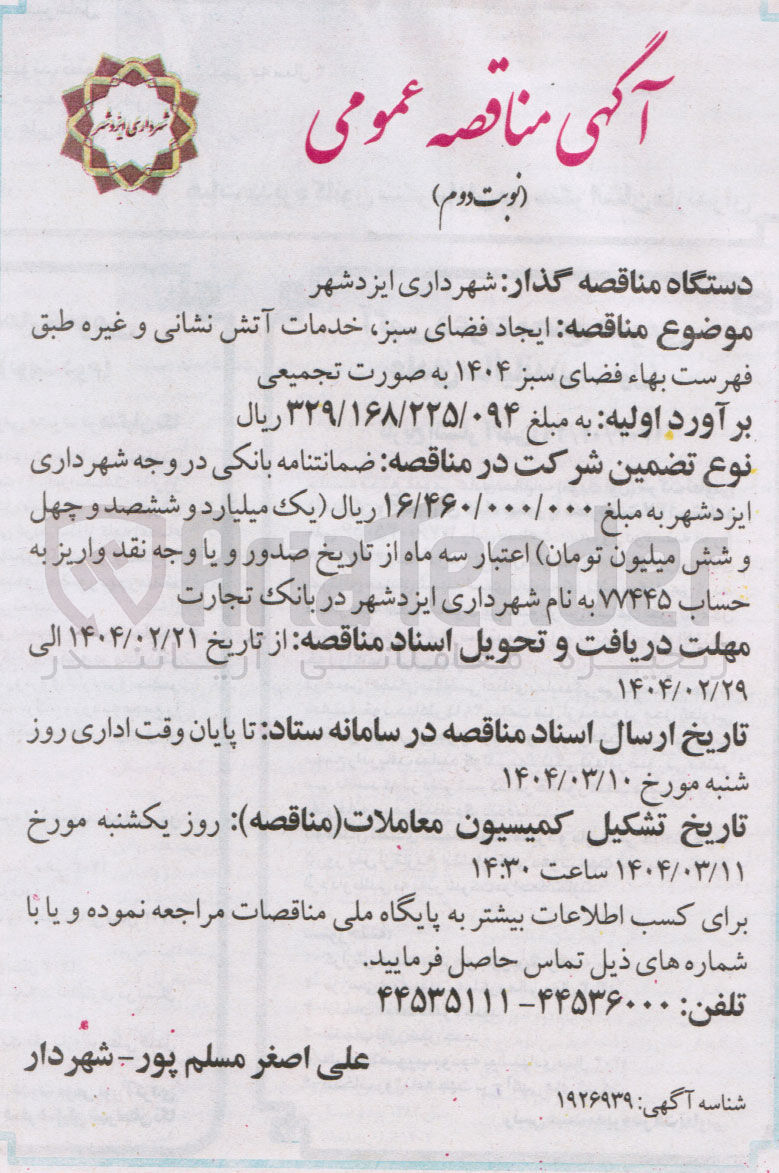 آگهی مناقصه عمومی
شهرداری ایزدشهر
(نوبت دوم)
دستگاه مناقصه گذار: شهرداری ایزدشهر
موضوع مناقصه: ایجاد فضای سبز، خدمات آتش نشانی و غیره طبق
فهرست بهاء فضای سبز ۱۴۰۴ به صورت تجمیعی
برآورد اولیه: به مبلغ ۳۲۹/۱۶۸/۲۲۵/۰۹۴ ریال
نوع تضمین شرکت در مناقصه: ضمانتنامه بانکی در وجه شهرداری
ایزدشهر به مبلغ ۱۶/۴۶۰/۰۰۰/۰۰۰ ریال (یک میلیارد و ششصد و چهل
و شش میلیون تومان) اعتبار سه ماه از تاریخ صدور و یا وجه نقد واریز به
حساب ۷۷۴۴۵ به نام شهرداری ایزدشهر در بانک تجارت
مهلت دریافت و تحویل اسناد مناقصه: از تاریخ ۱۴۰۴/۰۲/۲۱ الی
۱۴۰۴/۰۲/۲۹
تاریخ ارسال اسناد مناقصه در سامانه ستاد: تا پایان وقت اداری روز
شنبه مورخ ۱۴۰۴/۰۳/۱۰
تاریخ تشکیل کمیسیون معاملات(مناقصه): روز یکشنبه مورخ
۱۴۰۴/۰۳/۱۱ ساعت ۱۴:۳۰
برای کسب اطلاعات بیشتر به پایگاه ملی مناقصات مراجعه نموده و یا با
شماره های ذیل تماس حاصل فرمایید.
تلفن: ۴۴۵۳۶۰۰۰- ۴۴۵۳۵۱۱۱
علی اصغر مسلم پور - شهردار
شناسه آگهی: ۱۹۲۶۹۳۹
AriaTender
زنجیره معاملاتی آریاتندر